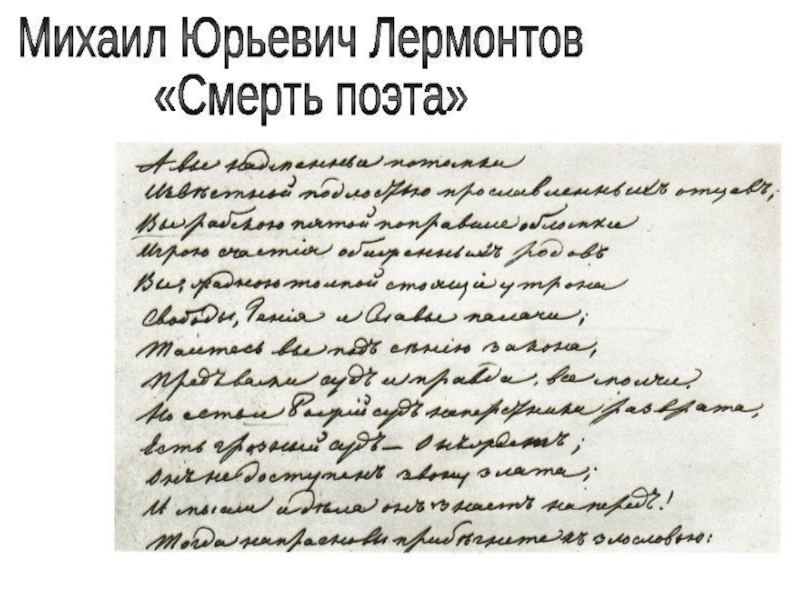 Михаил Юрьевич Лермонтов
«Смерть поэта»
А вы надменные потомки
Извѣстной подлостью прославленныхъ отцевъ,
Вы рабскою пятой поправшіе обломки
Игрою счастія обиженныхъ родовъ
Вы, жадною толпой стоящіе у трона
Свободы, Генія и Славы палачи;
Таитесь вы подъ сѣнію закона,
Предъ вами судъ и правда, все молчи.
Но есть и Божій судъ наперстники разврата,
Есть грозный судъ — Онъ ждетъ;
Онъ не доступенъ звону злата;
И мысли и дѣла онъ знаетъ напередъ!
Тогда напрасно вы прибѣгнете къ злословью: